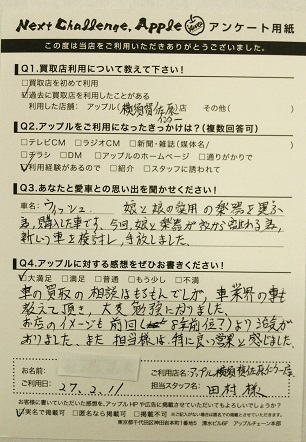 Next Challenge, Apple アンケート用紙
この度は当店をご利用いただきありがとうございました。
Q1.買取店利用について教えて下さい!
□買取店を初めて利用
☑過去に買取店を利用したことがある
利用した店舗: アップル(横須賀佐原インター店 その他( )
Q2.アップルをご利用になったきっかけは?(複数回答可)
□テレビCM □ラジオCM □新聞・雑誌(媒体名/ )
□チラシ □DM □アップルのホームページ □通りがかりで
☑利用経験があるので □紹介 □スタッフに誘われて
Q3.あなたと愛車との思い出を聞かせください!
車名: ウィッシュ. 娘と娘の愛用の楽器を運ぶ
為,購入した車です。今回,娘と楽器が我から離れる為,
新しい車を検討し,手放しました。
Q4.アップルに対する感想をぜひお書きください!
☑大満足 □満足 □普通 □もう少し □不満
車の買取の相談はもちろんでしたが,車業界の事も
教えて頂き,大変勉強になりました。
お店のイメージも前回(8年前位?)より活気が
ありました。また担当様は,特に良い営業と感じました。
お名前:
ご利用店名:アップル横須賀佐原インター店
ご利用日: 27.2.11
担当スタッフ名: 田村様
お客様に書いていただいた感想を、アップルHPや広告に掲載させていただいてもよろしいでしょうか?
☑実名で掲載可 □匿名なら掲載可 □掲載不可
東京都千代田区神田岩本町1番地1 清水ビル6F アップルチェーン本部